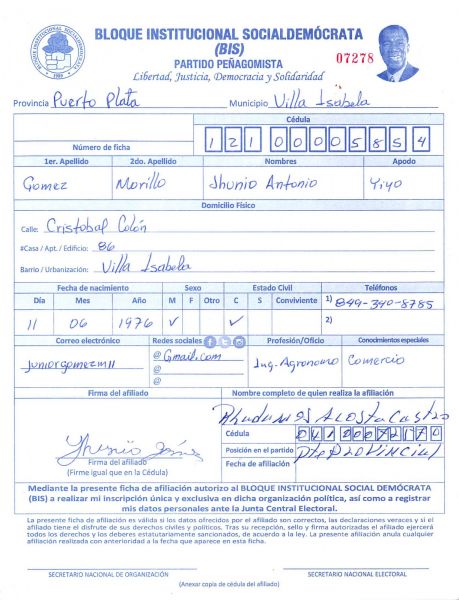 BLOQUE INSTITUCIONAL SOCIALDEMÓCRATA
(BIS)
PARTIDO PEÑAGOMISTA
07278
Libertad, Justicia, Democracia y Solidaridad
Provincia Puerto Plata Municipio Villa Isabela
Cédula
Número de ficha 121 0000585 4
1er. Apellido 2do. Apellido Nombres Apodo
Gomez Morillo Jhunio Antonio Yiyo
Domicilio Físico
Calle: Cristobal Colón
#Casa / Apt. / Edificio: 86
Barrio / Urbanización: Villa Isabela
Fecha de nacimiento Sexo Estado Civil Teléfonos
Día Mes Año M F Otro C S Conviviente 1) 849-340-8785
11 06 1976 ✓ ✓ 2)
Correo electrónico Redes sociales Profesión/Oficio Conocimientos especiales
juniorgomezm11 @ Gmail.com Ing. Agronomo Comercio
@
@
Firma del afiliado Nombre completo de quien realiza la afiliación
Acosta Castro
Cédula
Firma del afiliado Posición en el partido Pte Provincial
(Firme igual que en la Cédula) Fecha de afiliación
Mediante la presente ficha de afiliación autorizo al BLOQUE INSTITUCIONAL SOCIAL DEMÓCRATA
(BIS) a realizar mi inscripción única y exclusiva en dicha organización política, así como a registrar
mis datos personales ante la Junta Central Electoral.
La presente ficha de afiliación es válida si los datos ofrecidos por el afiliado son correctos, las declaraciones veraces y si el
afiliado tiene el disfrute de sus derechos civiles y políticos. Tras su recepción, sello y firma autorizadas el afiliado ejercerá
todos los derechos y los deberes estatutariamente sancionados, de acuerdo a la ley. La presente afiliación anula cualquier
afiliación realizada con anterioridad a la fecha que aparece en esta ficha.
SECRETARIO NACIONAL DE ORGANIZACIÓN SECRETARIO NACIONAL ELECTORAL
(Anexar copia de cédula del afiliado)